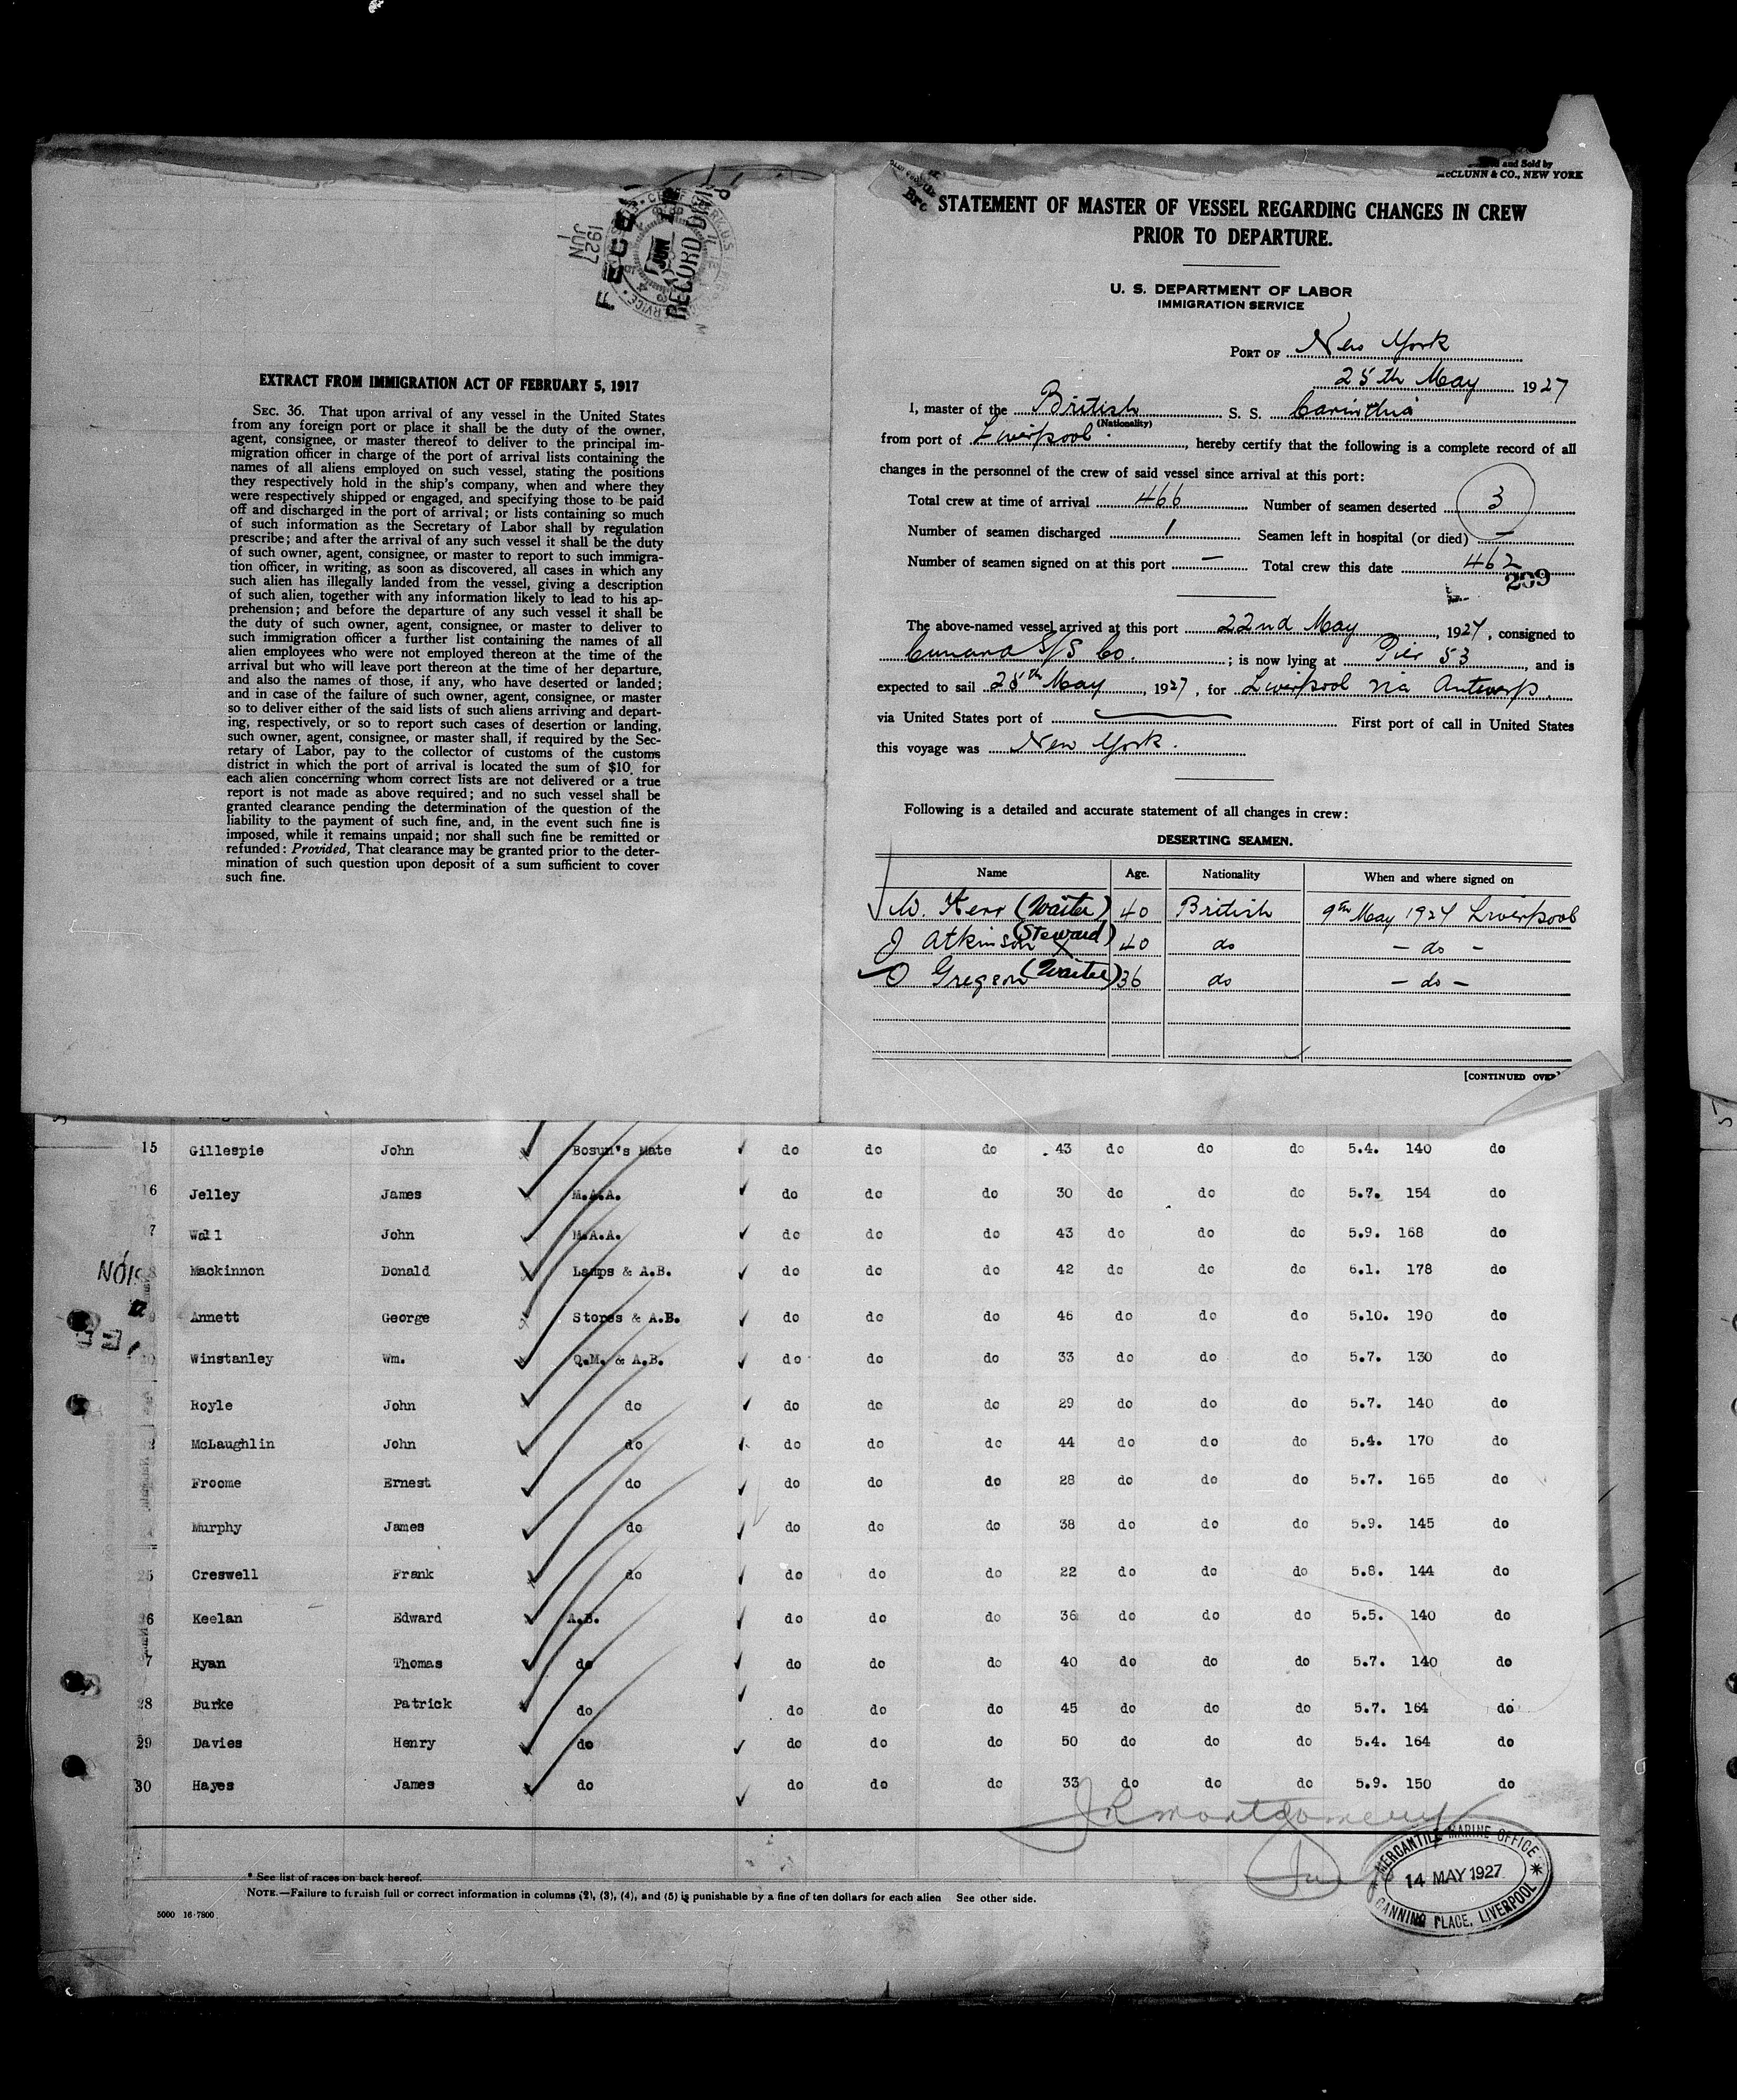 RECORD DIV
1927
JUN
1
EXTRACT FROM IMMIGRATION ACT OF FEBRUARY 5, 1917
SEC. 36. That upon arrival of any vessel in the United States
from any foreign port or place it shall be the duty of the owner,
agent, consignee, or master thereof to deliver to the principal im-
migration officer in charge of the port of arrival lists containing the
names of all aliens employed on such vessel, stating the positions
they respectively hold in the ship's company, when and where they
were respectively shipped or engaged, and specifying those to be paid
off and discharged in the port of arrival; or lists containing so much
of such information as the Secretary of Labor shall by regulation
prescribe; and after the arrival of any such vessel it shall be the duty
of such owner, agent, consignee, or master to report to such immigra-
tion officer, in writing, as soon as discovered, all cases in which any
such alien has illegally landed from the vessel, giving a description
of such alien, together with any information likely to lead to his ap-
prehension; and before the departure of any such vessel it shall be
the duty of such owner, agent, consignee, or master to deliver to
such immigration officer a further list containing the names of all
alien employees who were not employed thereon at the time of the
arrival but who will leave port thereon at the time of her departure,
and also the names of those, if any, who have deserted or landed;
and in case of the failure of such owner, agent, consignee, or master
so to deliver either of the said lists of such aliens arriving and depart-
ing, respectively, or so to report such cases of desertion or landing,
such owner, agent, consignee, or master shall, if required by the Sec-
retary of Labor, pay to the collector of customs of the customs
district in which the port of arrival is located the sum of $10 for
each alien concerning whom correct lists are not delivered or a true
report is not made as above required; and no such vessel shall be
granted clearance pending the determination of the question of the
liability to the payment of such fine, and, in the event such fine is
imposed, while it remains unpaid; nor shall such fine be remitted or
refunded: Provided, That clearance may be granted prior to the deter-
mination of such question upon deposit of a sum sufficient to cover
such fine.
and Sold by
McCLUNN & CO., NEW YORK
STATEMENT OF MASTER OF VESSEL REGARDING CHANGES IN CREW
PRIOR TO DEPARTURE.
U. S. DEPARTMENT OF LABOR
IMMIGRATION SERVICE
PORT OF New York
28th May 1927
I, master of the British S. S. Carinthia
(Nationality)
from port of Liverpool, hereby certify that the following is a complete record of all
changes in the personnel of the crew of said vessel since arrival at this port:
Total crew at time of arrival 466 Number of seamen deserted 3
Number of seamen discharged 1 Seamen left in hospital (or died) —
Number of seamen signed on at this port — Total crew this date 462
209
The above-named vessel arrived at this port 22nd May, 1927, consigned to
Cunard S/S Co.; is now lying at Pier 53, and is
expected to sail 28th May, 1927, for Liverpool via Antwerp.
via United States port of — First port of call in United States
this voyage was New York.
Following is a detailed and accurate statement of all changes in crew:
DESERTING SEAMEN.
Name Age. Nationality When and where signed on
W. Kerr (Waiter) 40 British 9th May 1927 Liverpool
J Atkinson (Steward) 40 do - do -
O Gregson (Waiter) 36 do - do -
[CONTINUED OVER]
15 Gillespie John Bosun's Mate do do do 43 do do do 5.4. 140 do
16 Jelley James M.A.A. do do do 30 do do do 5.7. 154 do
7 Wall John M.A.A. do do do 43 do do do 5.9. 168 do
8 Mackinnon Donald Lamps & A.B. do do do 42 do do do 6.1. 178 do
Annett George Stores & A.B. do do do 46 do do do 5.10. 190 do
20 Winstanley Wm. Q.M. & A.B. do do do 33 do do do 5.7. 130 do
Royle John do do do do 29 do do do 5.7. 140 do
2 McLaughlin John do do do do 44 do do do 5.4. 170 do
Froome Ernest do do do do 28 do do do 5.7. 165 do
4 Murphy James do do do do 38 do do do 5.9. 145 do
25 Creswell Frank do do do do 22 do do do 5.8. 144 do
26 Keelan Edward A.B. do do do 36 do do do 5.5. 140 do
7 Ryan Thomas do do do do 40 do do do 5.7. 140 do
28 Burke Patrick do do do do 45 do do do 5.7. 164 do
29 Davies Henry do do do do 50 do do do 5.4. 164 do
30 Hayes James do do do do 33 do do do 5.9. 150 do
JR Montgomery
* See list of races on back hereof.
NOTE.—Failure to furnish full or correct information in columns (2), (3), (4), and (5) is punishable by a fine of ten dollars for each alien See other side.
5000 16-7800
MERCANTILE MARINE OFFICE
14 MAY 1927
CANNING PLACE, LIVERPOOL